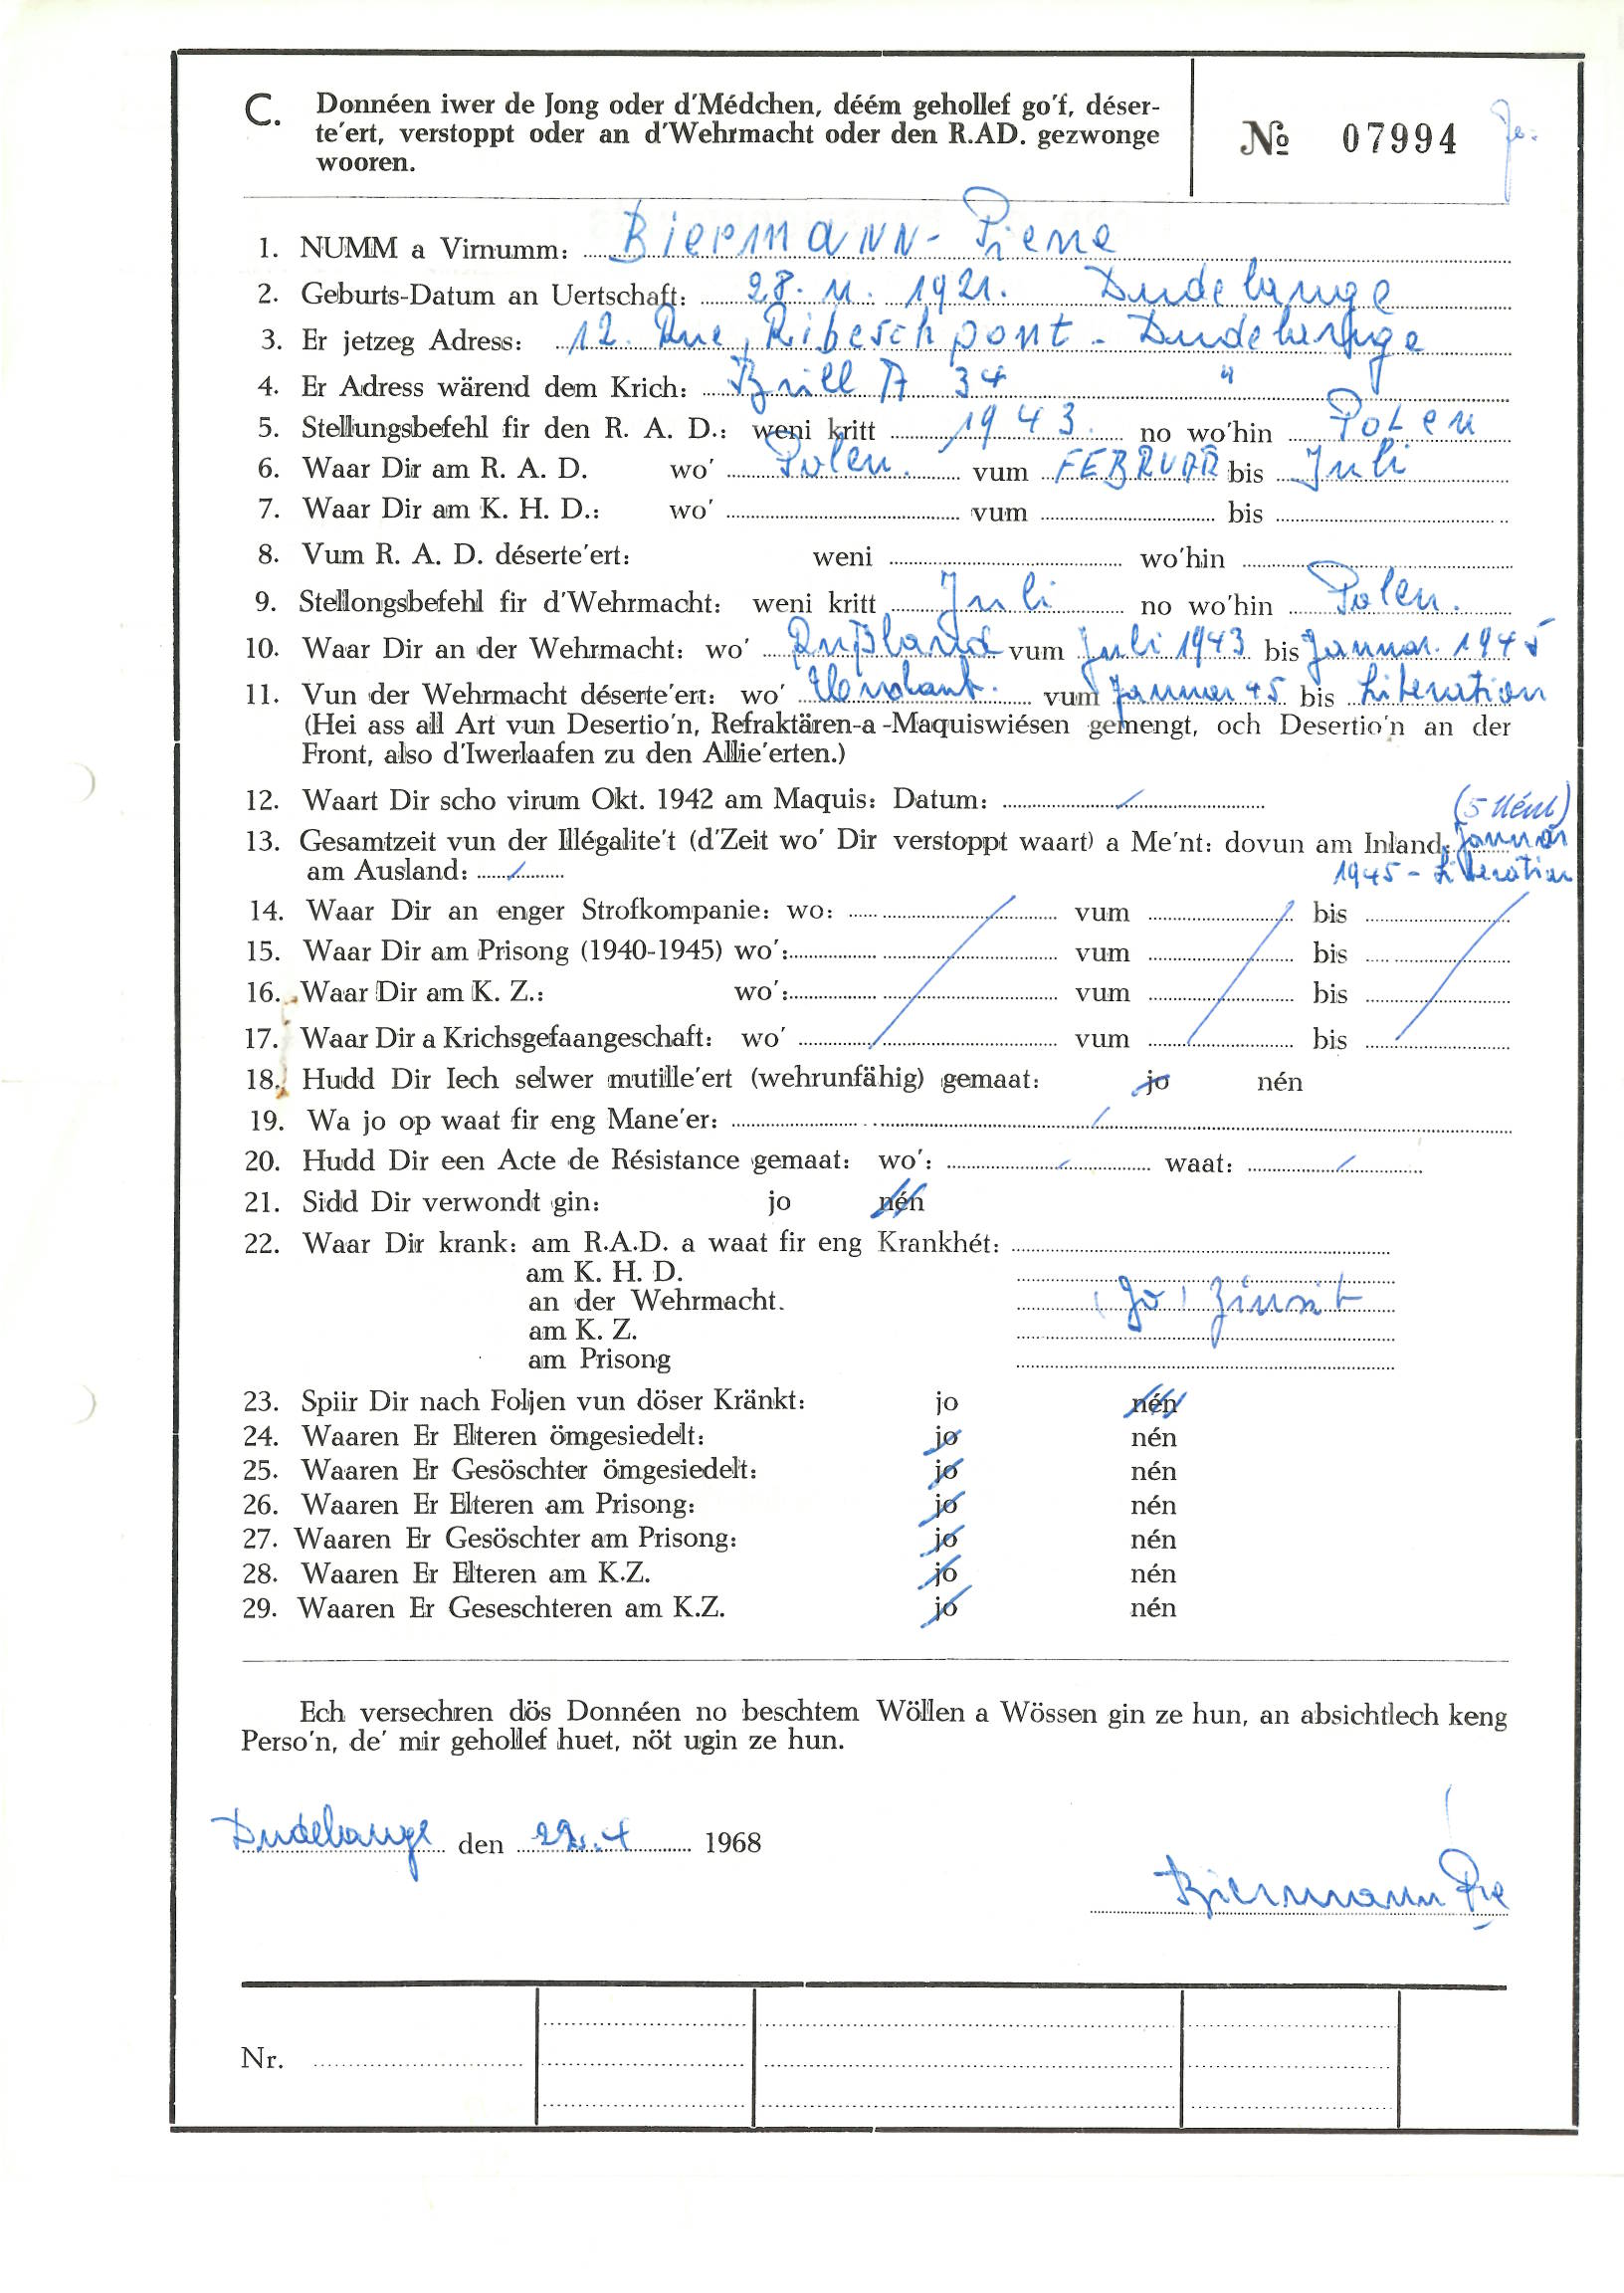 C. Donnéen iwer de Jong oder d'Médchen, déém gehollef go'f, déser-
te'ert, verstoppt oder an d'Wehrmacht oder den R.AD. gezwonge
wooren.
№ 07994
1. NUMM a Virnumm: Biermann - Pierre
2. Geburts-Datum an Uertschaft: 28. 11. 1921. Dudelange
3. Er jetzeg Adress: 12. Rue Ribeschpont - Dudelange
4. Er Adress wärend dem Krich: Brill A 34 "
5. Stellungsbefehl fir den R. A. D.: weni kritt 1943. no wo'hin Polen
6. Waar Dir am R. A. D. wo' Polen. vum FEBRUAR bis Juli
7. Waar Dir am K. H. D.: wo' vum bis
8. Vum R. A. D. déserte'ert: weni wo'hin
9. Stellongsbefehl fir d'Wehrmacht: weni kritt Juli no wo'hin Polen.
10. Waar Dir an der Wehrmacht: wo' Rußland vum Juli 1943 bis Januar. 1945
11. Vun der Wehrmacht déserte'ert: wo' vum Januar 45 bis Liberation
(Hei ass all Art vun Desertio'n, Refraktären-a-Maquiswiésen gemengt, och Desertio'n an der
Front, also d'Iwerlaafen zu den Allie'erten.)
12. Waart Dir scho virum Okt. 1942 am Maquis: Datum: /
(5 Mént)
13. Gesamtzeit vun der Illégalite't (d'Zeit wo' Dir verstoppt waart) a Me'nt: dovun am Inland: Januar
am Ausland: / 1945 - Liberation
14. Waar Dir an enger Strofkompanie: wo: vum bis
15. Waar Dir am Prisong (1940-1945) wo': vum bis
16. Waar Dir am K. Z.: wo': vum bis
17. Waar Dir a Krichsgefaangeschaft: wo' vum bis
18. Hudd Dir Iech selwer mutille'ert (wehrunfähig) gemaat: jo nén
19. Wa jo op waat fir eng Mane'er: /
20. Hudd Dir een Acte de Résistance gemaat: wo': / waat: /
21. Sidd Dir verwondt gin: jo nén
22. Waar Dir krank: am R.A.D. a waat fir eng Krankhét:
am K. H. D.
an der Wehrmacht. (Jo)
am K. Z.
am Prisong
23. Spiir Dir nach Foljen vun döser Kränkt: jo nén
24. Waaren Er Elteren ömgesiedelt: jo nén
25. Waaren Er Gesöschter ömgesiedelt: jo nén
26. Waaren Er Elteren am Prisong: jo nén
27. Waaren Er Gesöschter am Prisong: jo nén
28. Waaren Er Elteren am K.Z. jo nén
29. Waaren Er Geseschteren am K.Z. jo nén
Ech versechren dös Donnéen no beschtem Wöllen a Wössen gin ze hun, an absichtlech keng
Perso'n, de' mir gehollef huet, nöt ugin ze hun.
Dudelange den 1968
Biermann Pre
Nr.